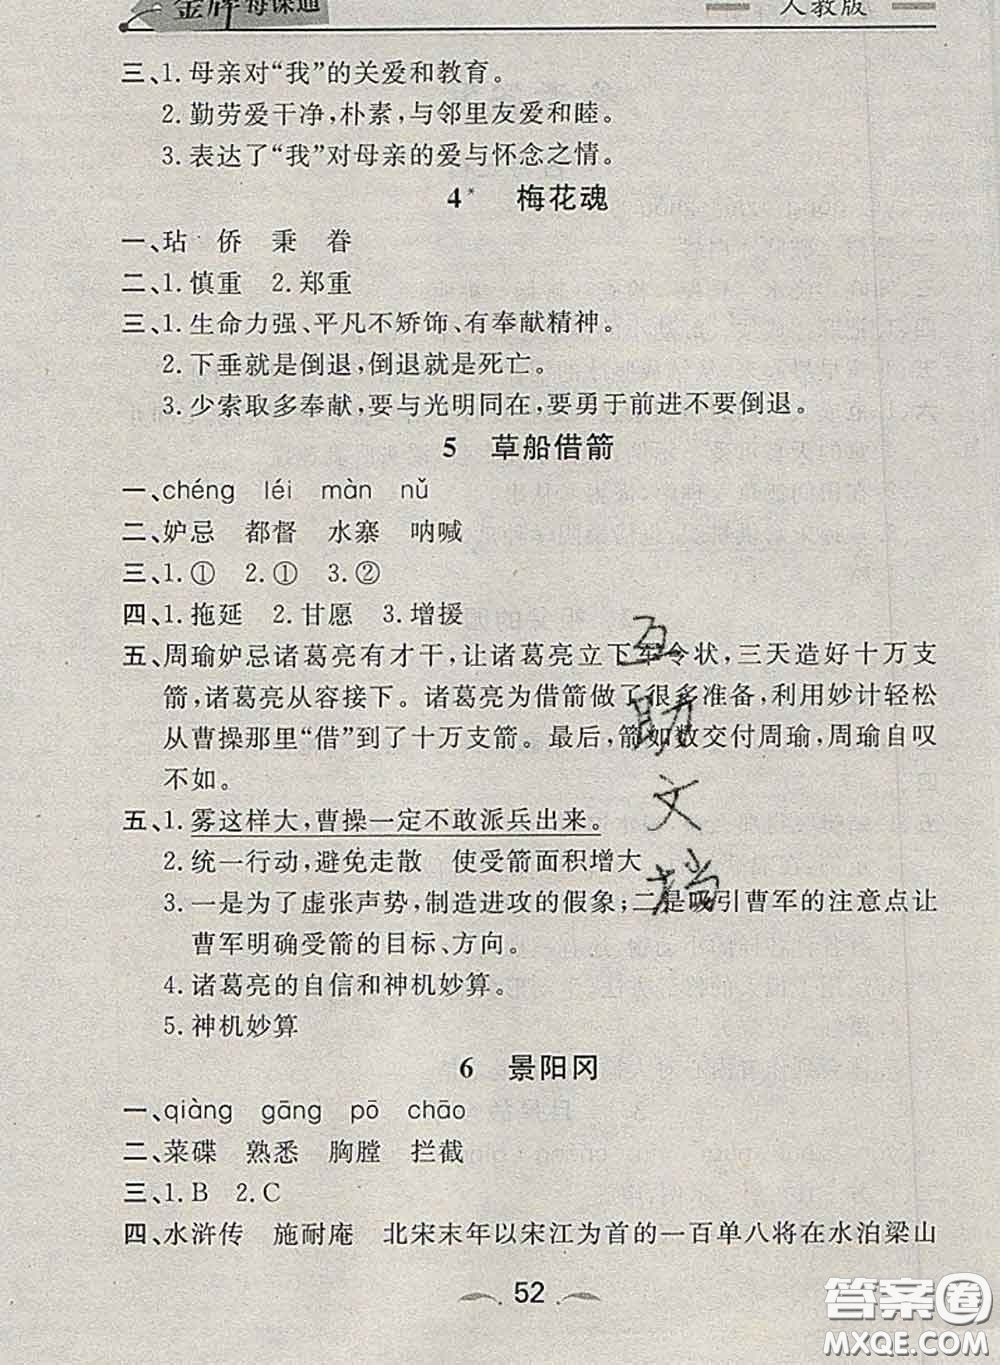 金牌每课通
人教版
三、1. 母亲对“我”的关爱和教育。
2. 勤劳爱干净,朴素,与邻里友爱和睦。
3. 表达了“我”对母亲的爱与怀念之情。
4* 梅花魂
一、玷 侨 秉 眷
二、1. 慎重 2. 郑重
三、1. 生命力强、平凡不矫饰、有奉献精神。
2. 下垂就是倒退,倒退就是死亡。
3. 少索取多奉献,要与光明同在,要勇于前进不要倒退。
5 草船借箭
一、chéng léi màn nǔ
二、妒忌 都督 水寨 呐喊
三、1. ① 2. ① 3. ②
四、1. 拖延 2. 甘愿 3. 增援
五、周瑜妒忌诸葛亮有才干,让诸葛亮立下军令状,三天造好十万支
箭,诸葛亮从容接下。诸葛亮为借箭做了很多准备,利用妙计轻松
从曹操那里“借”到了十万支箭。最后,箭如数交付周瑜,周瑜自叹
不如。
五、1. 雾这样大,曹操一定不敢派兵出来。
2. 统一行动,避免走散 使受箭面积增大
3. 一是为了虚张声势,制造进攻的假象;二是吸引曹军的注意点让
曹军明确受箭的目标、方向。
4. 诸葛亮的自信和神机妙算。
5. 神机妙算
6 景阳冈
一、qiàng gāng pō chāo
二、菜碟 熟悉 胸膛 拦截
三、1. B 2. C
四、水浒传 施耐庵 北宋末年以宋江为首的一百单八将在水泊梁山
52
互助文档
答案圈
MXQE.COM